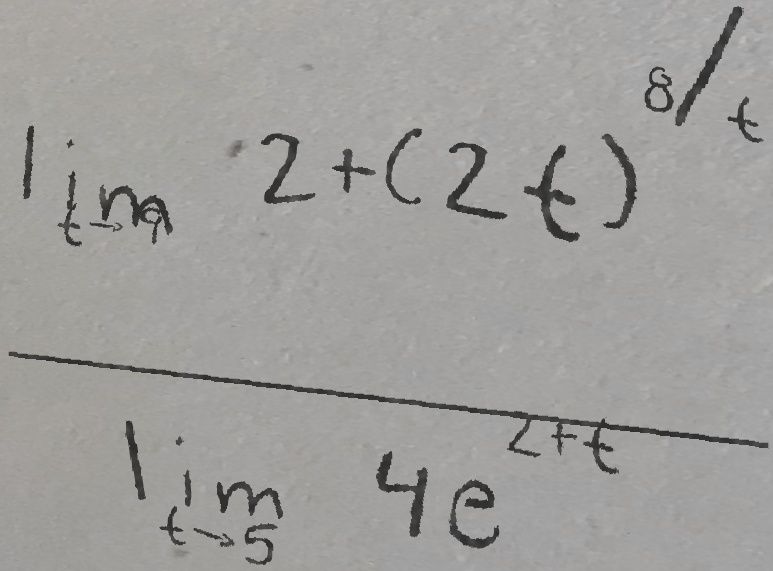 lim t→9 2+(2t)^8/t
lim t→5 4e^2+t